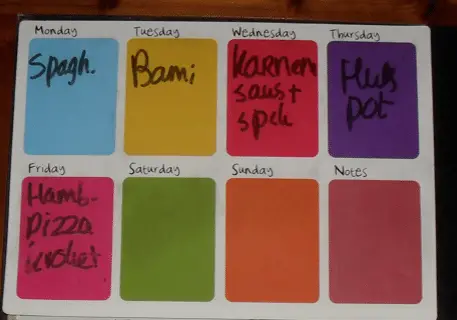 Monday Tuesday Wednesday Thursday
Spagh.
Bami
karnem
saus +
spek
Huts
pot
Friday Saturday Sunday Notes
Hamb.
Pizza